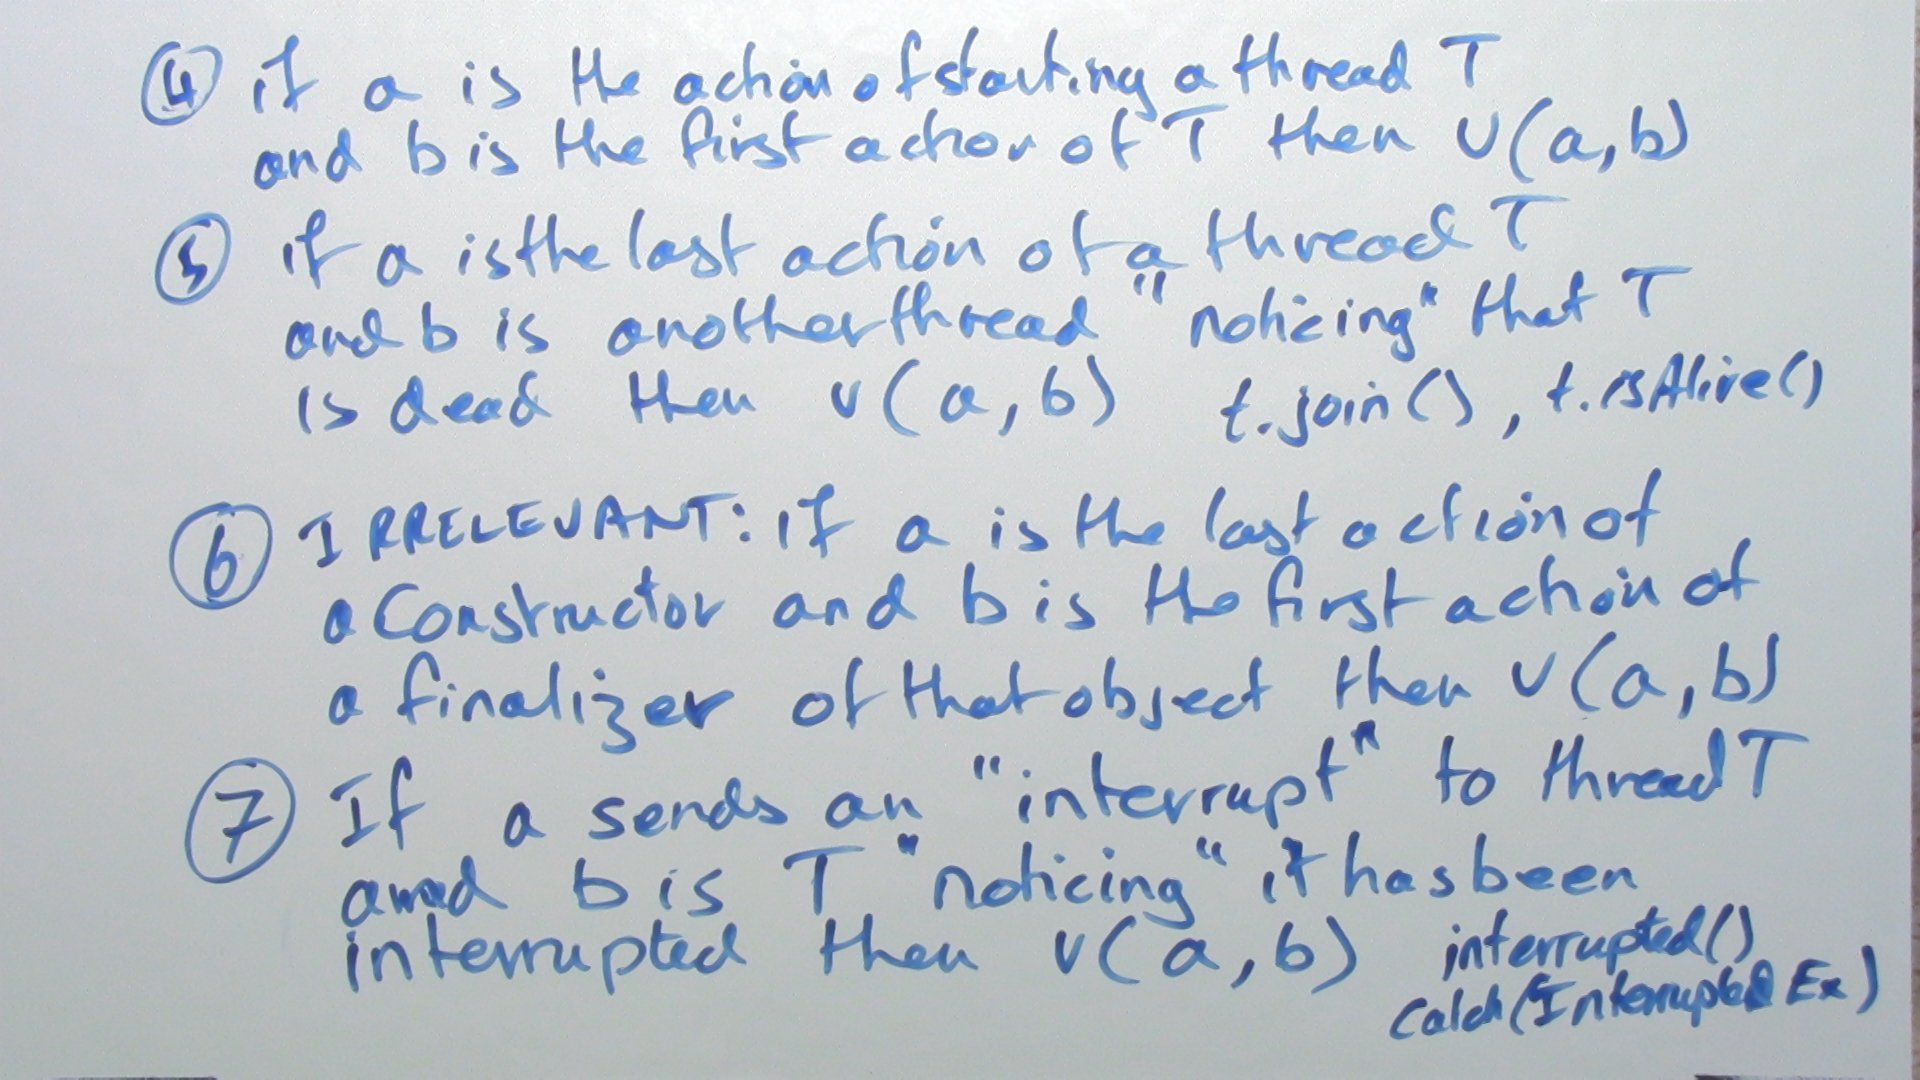 ④ if a is the action of starting a thread T
and b is the first action of T then v(a,b)
⑤ if a is the last action of a thread T
and b is another thread "noticing" that T
is dead then v(a,b) t.join(), t.isAlive()
⑥ IRRELEVANT: if a is the last action of
a constructor and b is the first action of
a finalizer of that object then v(a,b)
⑦ If a sends an "interrupt" to thread T
and b is T "noticing" it has been
interrupted then v(a,b) interrupted()
catch(Interrupted Ex)